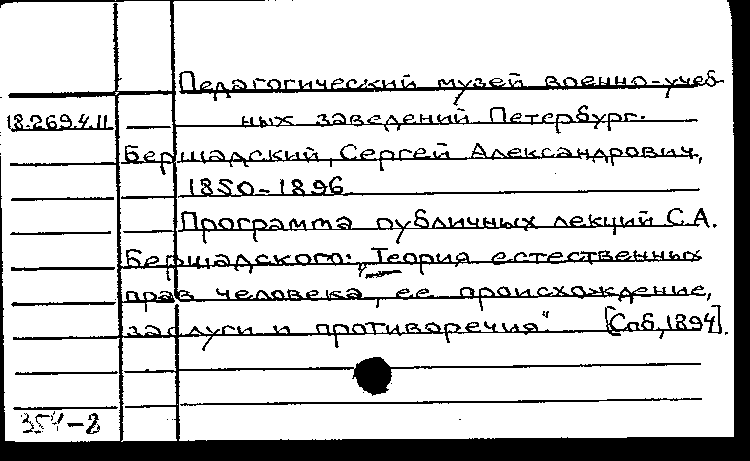 Педагогический музей военно-учеб-
18.269.4.11 ных заведений Петербург.
Бершадский, Сергей Александрович,
1850-1896
Программа публичных лекций С.А.
Бершадского: „Теория естественных
прав человека, ее происхождение,
заслуги и противоречия." [Спб, 1894].
354-8